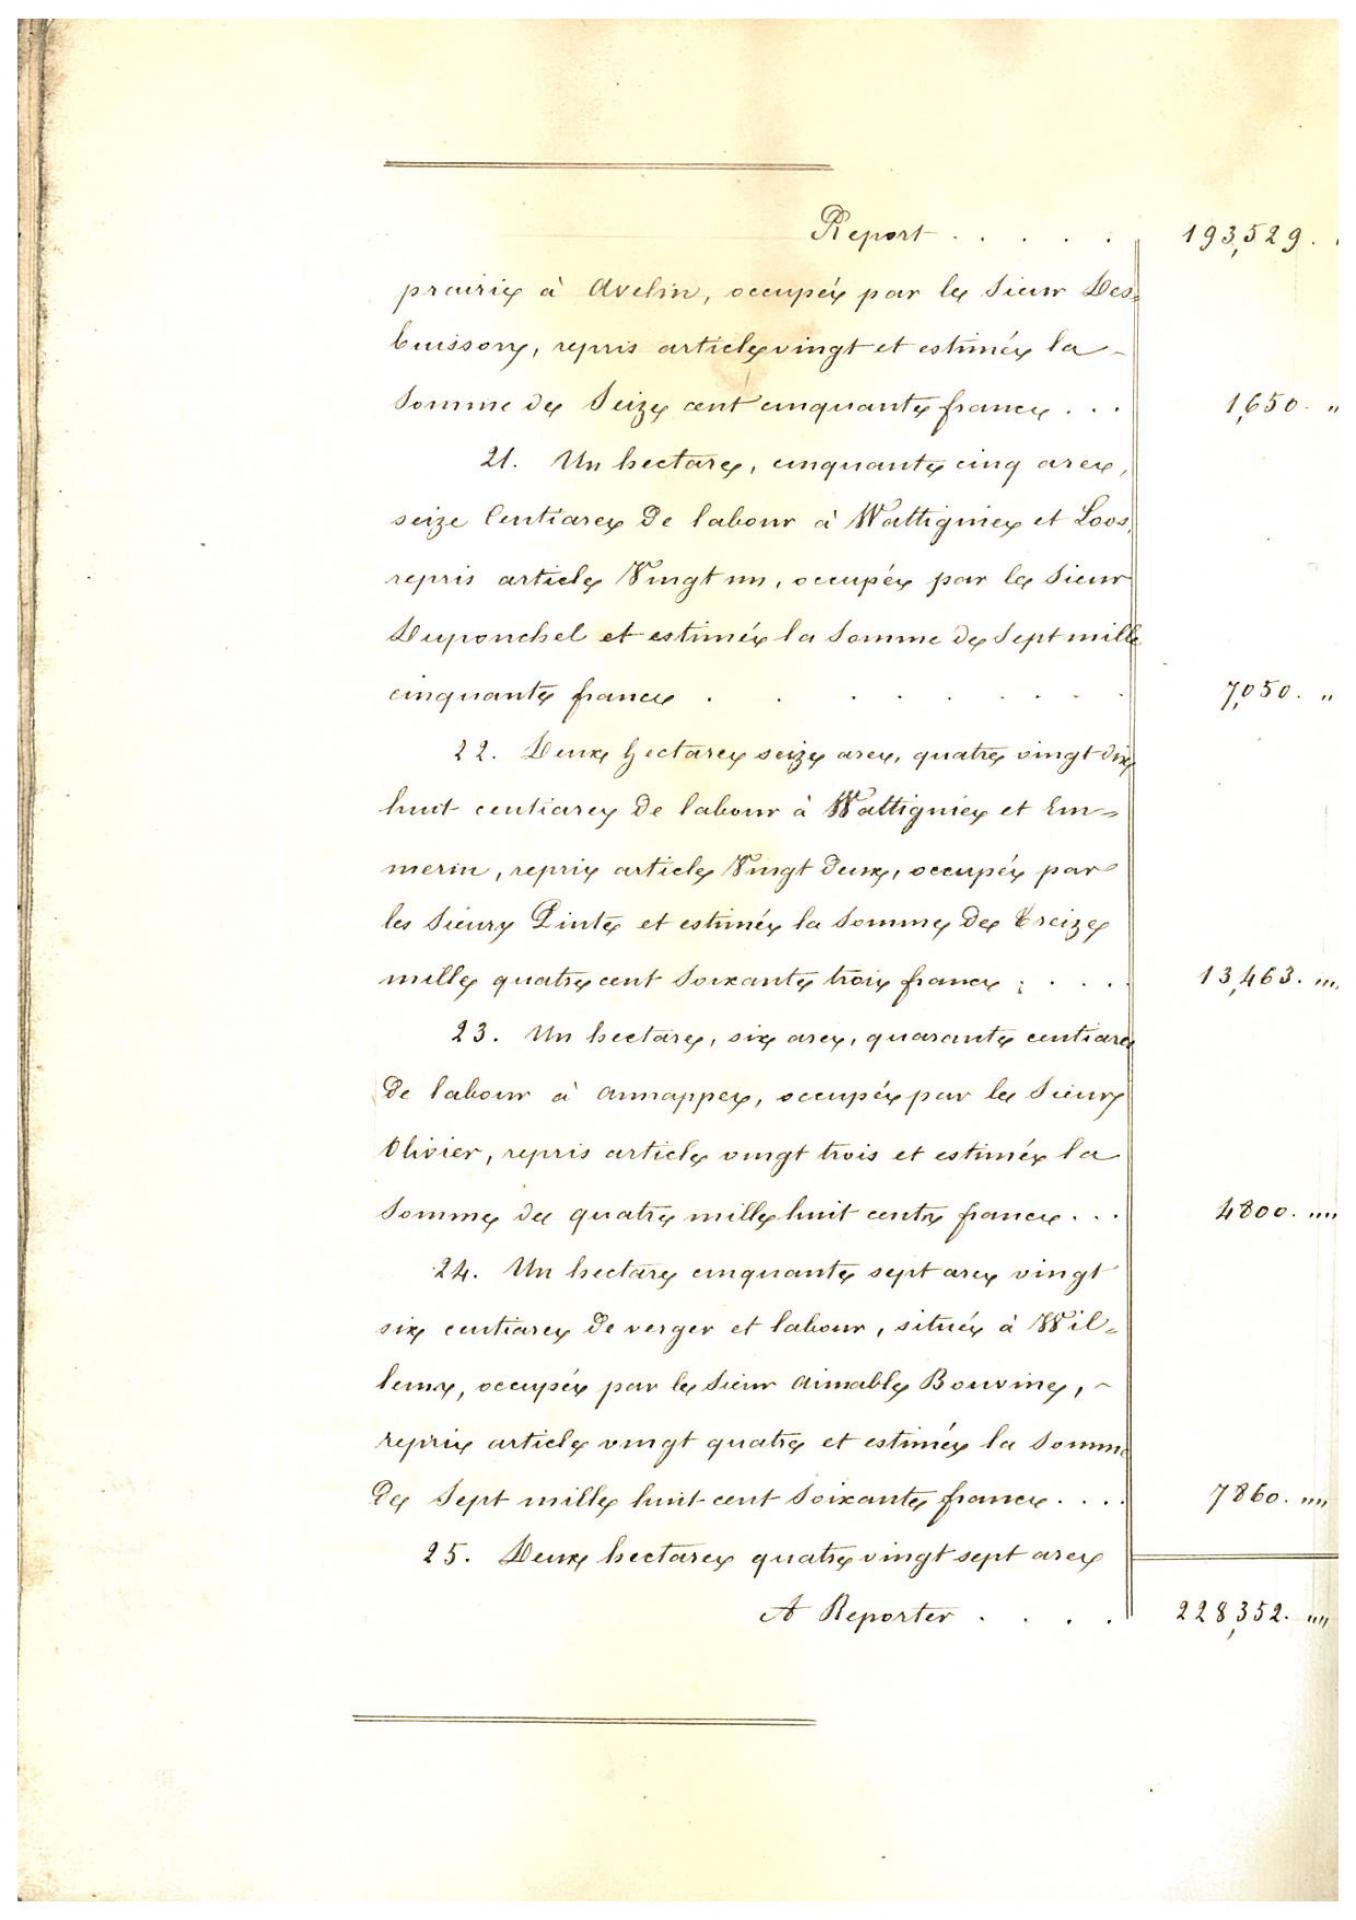 Report . . . . . 193,529. "
prairie à Avelin, occupée par le Sieur Des=
buissons, repris article vingt et estimée la -
somme de Seize cent cinquante francs . . . 1,650. "
21. Un hectare, cinquante cinq ares,
seize Centiares de labour à Wattignies et Loos,
repris article Vingt un, occupée par le Sieur
Duponchel et estimée la somme de Sept mille
cinquante francs . . . . . . . . 7,050. "
22. Deux hectares seize ares, quatre vingt dix
huit centiares de labour à Wattignies et Em=
merin, repris article Vingt deux, occupée par
les Sieurs Pinte et estimée la somme de treize
mille quatre cent soixante trois francs . . . . 13,463. """
23. Un hectare, six ares, quarante centiares
de labour à Annappes, occupée par le Sieurs
Olivier, repris article vingt trois et estimée la
somme de quatre mille huit cents francs . . . 4800. """"
24. Un hectare cinquante sept ares vingt
six centiares de verger et labour, située à Wil=
lems, occupée par le Sieur Aimable Bouvines, -
repris article vingt quatre et estimée la somme
de Sept mille huit cent soixante francs . . . . 7860. """"
25. Deux hectares quatre vingt sept ares
A Reporter . . . . 228,352. """"